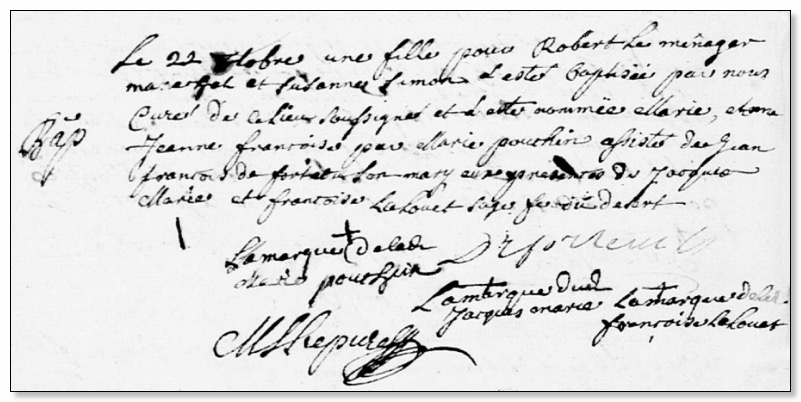 Bap
Le 22 octobre une fille pour Robert Le ménager
mareschal et Susanne Simon a esté baptisée par nous
Curé de ce lieu soussigné et a esté nommée Marie,
Jeanne françoise par Marie pouchin assistée de Jean
françois de son mary en presences de Jacques
Marie et françoise Lelouet sage fe du desert
La marque + de lad
Marie pouchin
La marque dud
Jacques marie
La marque de lad
françoise Lelouet